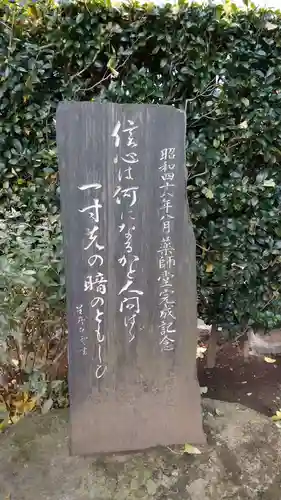 昭和四十八年八月薬師堂完成記念
信心は何になるかと人問はゞ
一寸先の暗のともしと